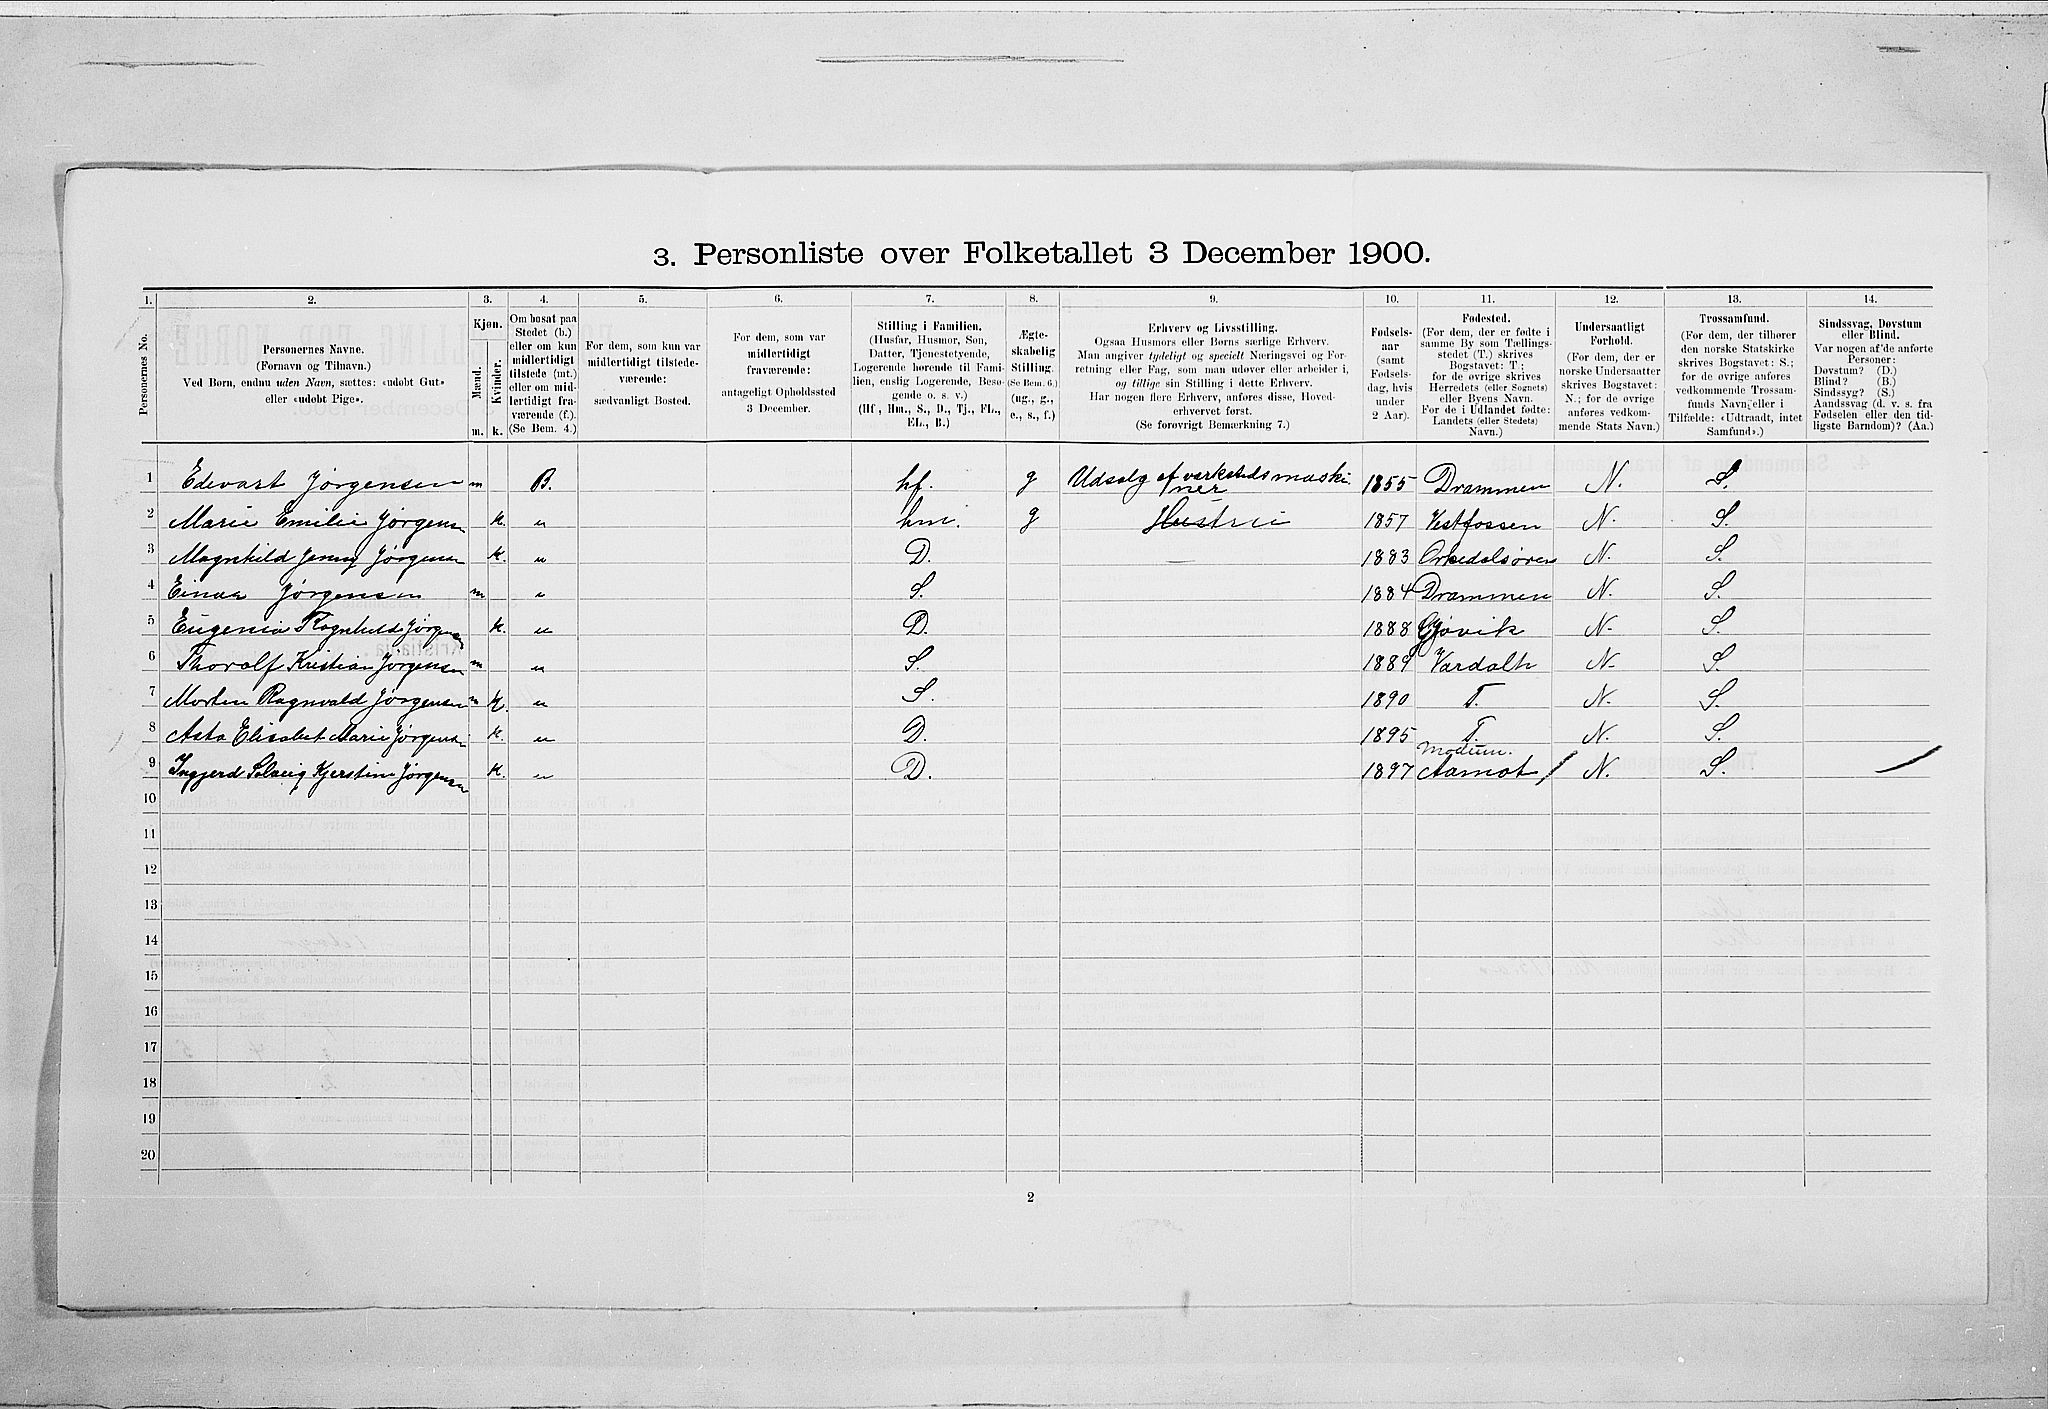 3. Personliste over Folketallet 3 December 1900.
1. 2. 3. 4. 5. 6. 7. 8. 9. 10. 11. 12. 13. 14.
Personernes No.
Personernes Navne.
(Fornavn og Tilnavn.)
Ved Børn, endnu uden Navn, sættes: «udøbt Gut»
eller «udøbt Pige».
Kjøn.
Mænd. Kvinder.
m. k.
Om bosat paa
Stedet (b.)
eller om kun
midlertidigt
tilstede (mt.)
eller om mid-
lertidigt fra-
værende (f.).
(Se Bem. 4.)
For dem, som kun var
midlertidigt tilstede-
værende:
sædvanligt Bosted.
For dem, som var
midlertidigt
fraværende:
antageligt Opholdssted
3 December.
Stilling i Familien.
(Husfar, Husmor, Søn,
Datter, Tjenestetyende,
Logerende hørende til Fami-
lien, enslig Logerende, Besø-
gende o. s. v.)
(Hf., Hm., S., D., Tj., FL.,
EL., B.)
Ægte-
skabelig
Stilling.
(Se Bem. 6.)
(ug., g.,
e., s., f.)
Erhverv og Livsstilling.
Ogsaa Husmors eller Børns særlige Erhverv.
Man angiver tydeligt og specielt Næringsvei og For-
retning eller Fag, som man udøver eller arbeider i,
og tillige sin Stilling i dette Erhverv.
Har nogen flere Erhverv, anføres disse, Hoved-
erhvervet først.
(Se forøvrigt Bemærkning 7.)
Fødsels-
aar
(samt
Fødsels-
dag, hvis
under
2 Aar).
Fødested.
(For dem, der er fødte i
samme By som Tællings-
stedet (T.) skrives
Bogstavet: T;
for de øvrige skrives
Herredets (eller Sognets)
eller Byens Navn.
For de i Udlandet fødte:
Landets (eller Stedets)
Navn.)
Undersaatligt
Forhold.
(For dem, der er
norske Undersaatter
skrives Bogstavet:
N.; for de øvrige
anføres vedkom-
mende Stats Navn.)
Trossamfund.
(For dem, der tilhører
den norske Statskirke
skrives Bogstavet: S.;
for de øvrige anføres
vedkommende Trossam-
funds Navn, eller i
Tilfælde: «Udtraadt, intet
Samfund».)
Sindssvag, Døvstum
eller Blind.
Var nogen af de anførte
Personer:
Døvstum? (D.)
Blind? (B.)
Sindssyg? (S.)
Aandssvag (d. v. s. fra
Fødselen eller den tid-
ligste Barndom)? (Aa.)
1 Edevart Jørgensen m B. hf. g Udsalg af værkstedsmaski 1855 Drammen N. S.
ner
2 Marie Emilie Jørgensen k. " hm. g Hustrui 1857 Vestfossen N. S.
3 Magnhild Jenny Jørgensen k. " D. — 1883 Orkedalsøren N. S.
4 Einar Jørgensen m " S. 1884 Drammen N. S.
5 Eugenia Ragnhild Jørgensen k. " D. 1888 Gjøvik N. S.
6 Thoralf Kristian Jørgensen m " S. 1889 Vardalh N. S.
7 Morten Ragnvald Jørgensen m k. " S. 1890 T. N. S.
8 Asta Elisabet Marie Jørgensen k. " D. 1895 T. N. S.
Modum.
9 Ingjerd Solveig Kjerstine Jørgensen k. " D. 1897 Aamot / N. S.
10
11
12
13
14
15
16
17
18
19
20
2